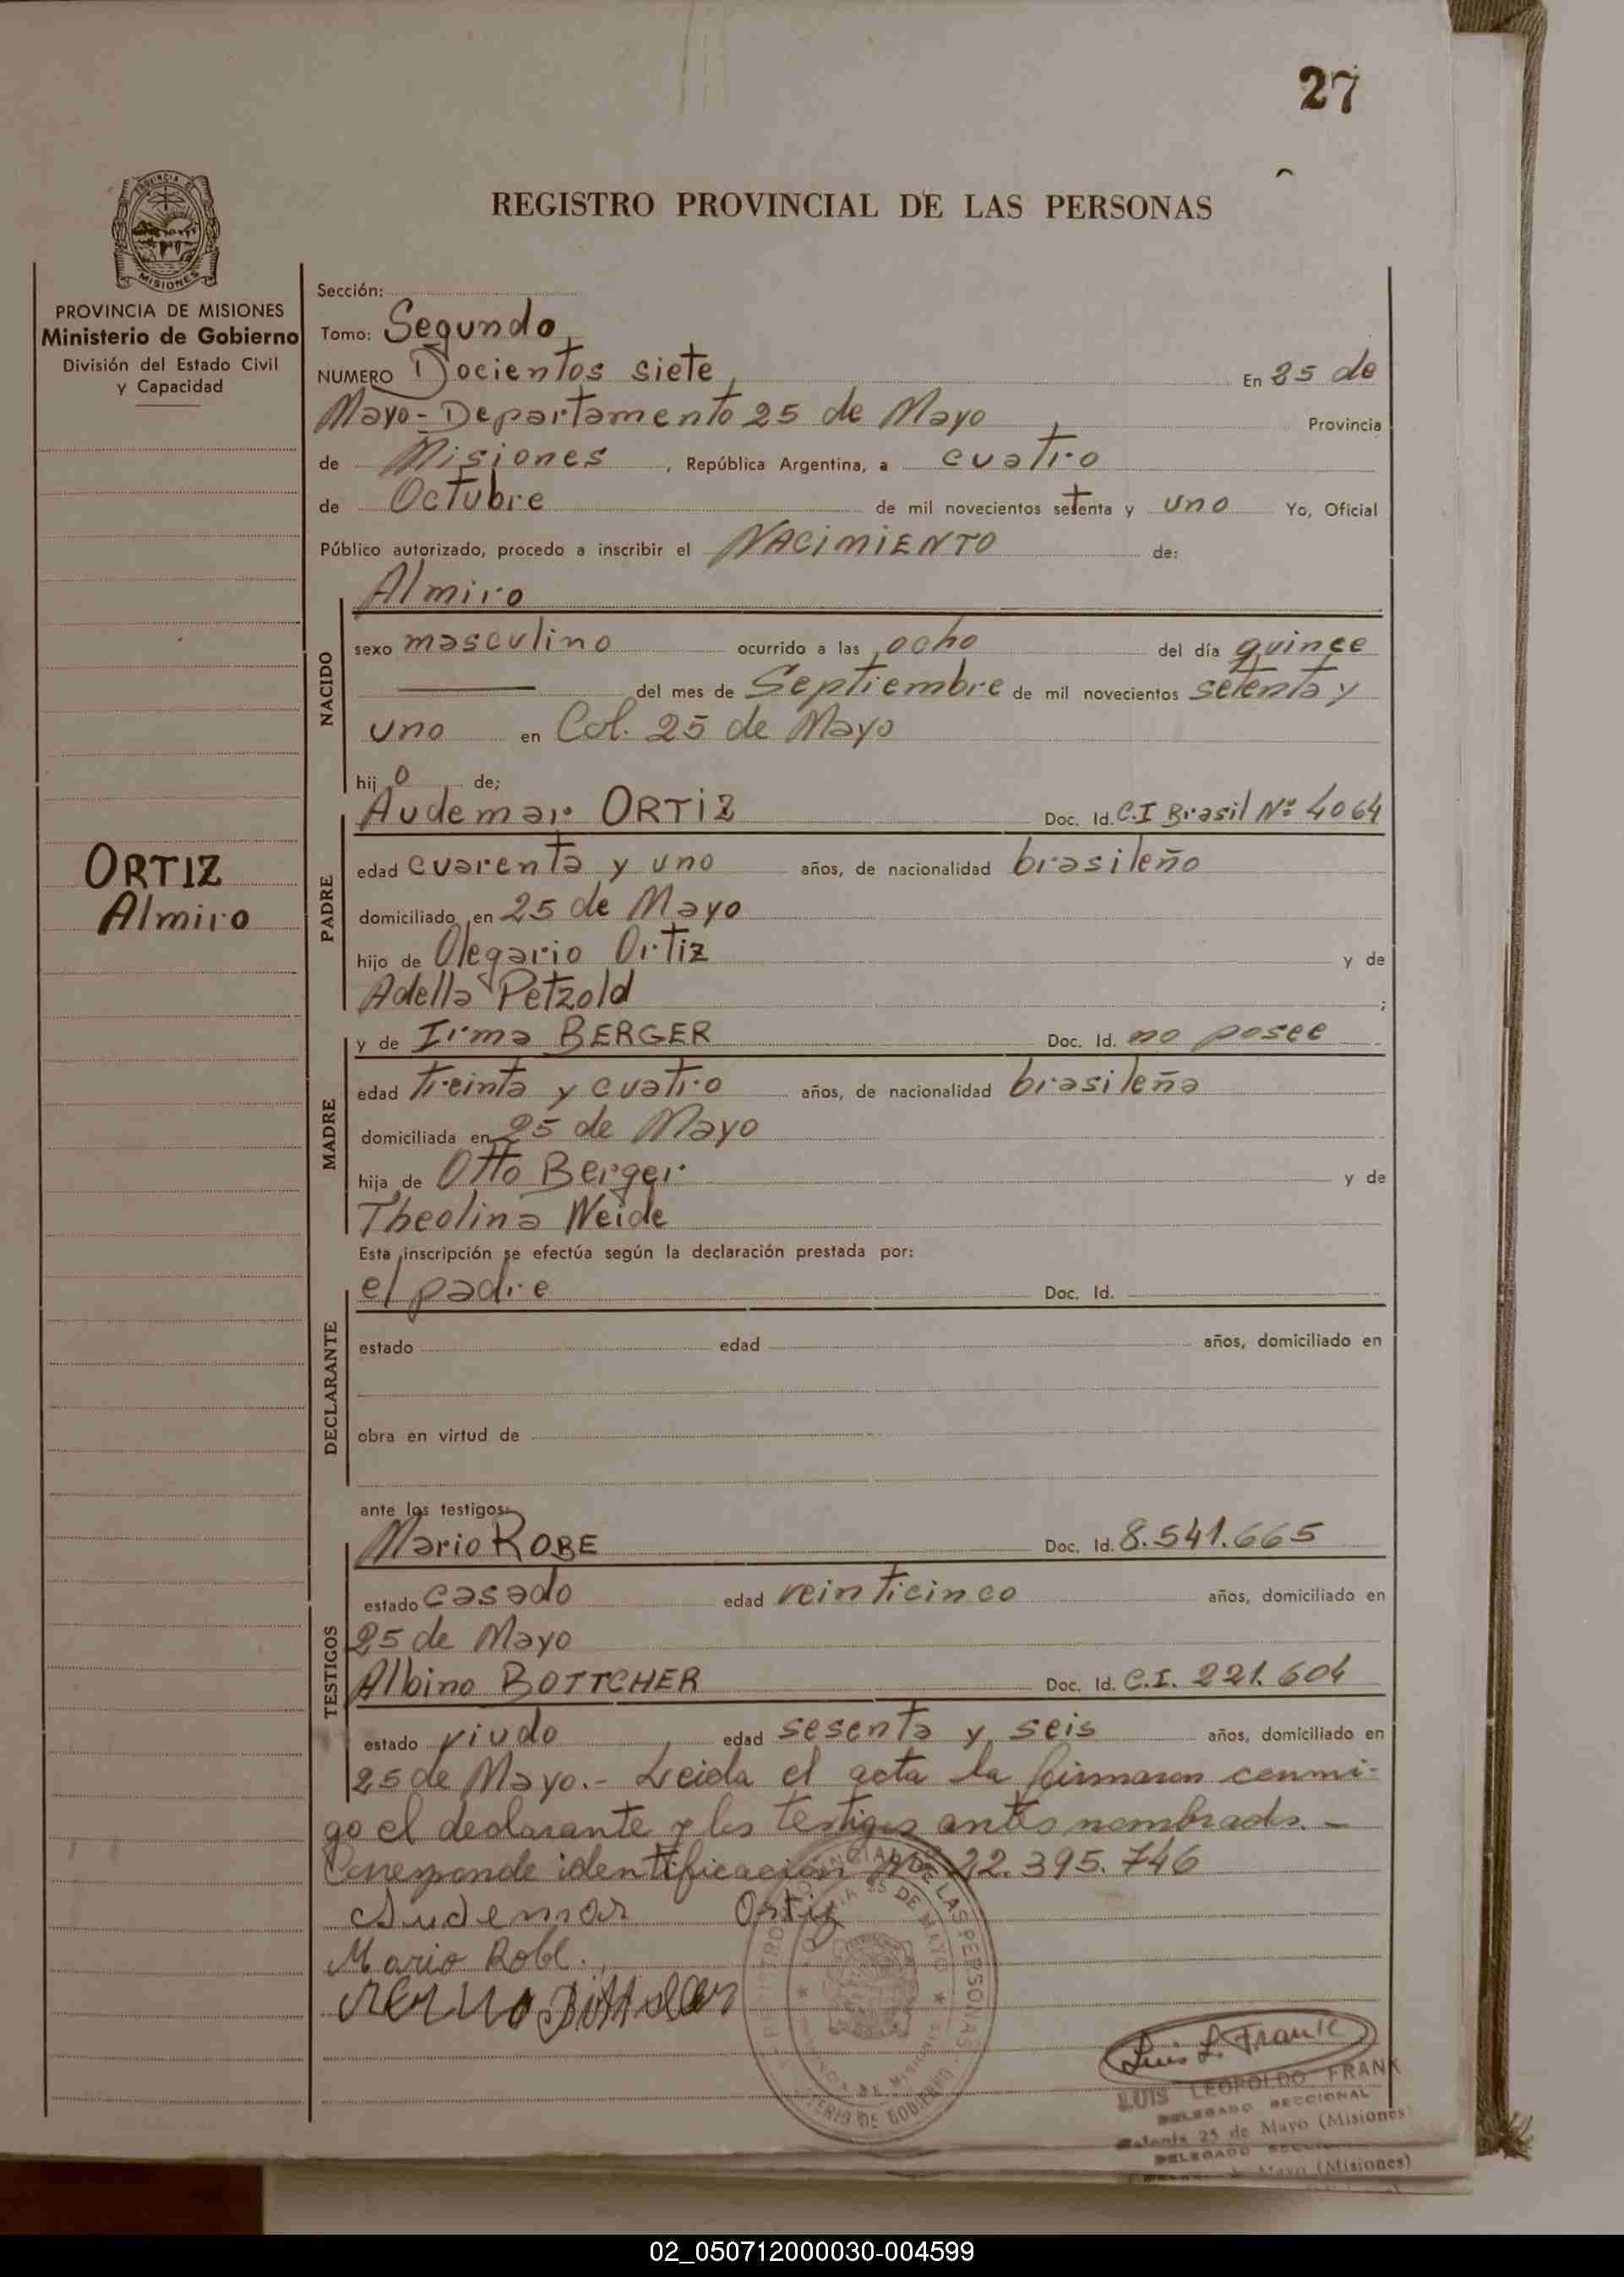 27
REGISTRO PROVINCIAL DE LAS PERSONAS
PROVINCIA DE MISIONES
Ministerio de Gobierno
División del Estado Civil
y Capacidad
ORTIZ
Almiro
Sección:
Tomo: Segundo
NUMERO Docientos siete, En 25 de
Mayo - Departamento 25 de Mayo Provincia
de Misiones, República Argentina, a cuatro
de Octubre de mil novecientos setenta y uno Yo, Oficial
Público autorizado, procedo a inscribir el NACIMIENTO de:
NACIDO
Almiro
sexo masculino ocurrido a las ocho del día quince
del mes de Septiembre de mil novecientos setenta y
uno en Col. 25 de Mayo
hijo de;
PADRE
Audemar ORTIZ Doc. Id. C.I Brasil Nº 4064
edad cuarenta y uno años, de nacionalidad brasileño
domiciliado en 25 de Mayo
hijo de Olegario Ortiz y de
Adella Petzold ;
MADRE
y de Irma BERGER Doc. Id. no posee
edad treinta y cuatro años, de nacionalidad brasileña
domiciliada en 25 de Mayo
hija de Otto Berger y de
Theolina Neide
Esta inscripción se efectúa según la declaración prestada por:
DECLARANTE
el padre Doc. Id.
estado edad años, domiciliado en
obra en virtud de
ante los testigos:
TESTIGOS
Mario ROBE Doc. Id. 8.541.665
estado casado edad veinticinco años, domiciliado en
25 de Mayo
Albino BOTTCHER Doc. Id. C.I. 221.604
estado viudo edad sesenta y seis años, domiciliado en
25 de Mayo.- Leida el acta la firmaron conmi-
go el declarante y los testigos antes nombrados. -
Corresponde identificación Nº 22.395.746
Audemar Ortiz
Mario Robe.
Luis L. Frank
LUIS LEOPOLDO FRANK
DELEGADO SECCIONAL
Colonia 25 de Mayo (Misiones)
DELEGADO
Mayo (Misiones)
02_050712000030-004599